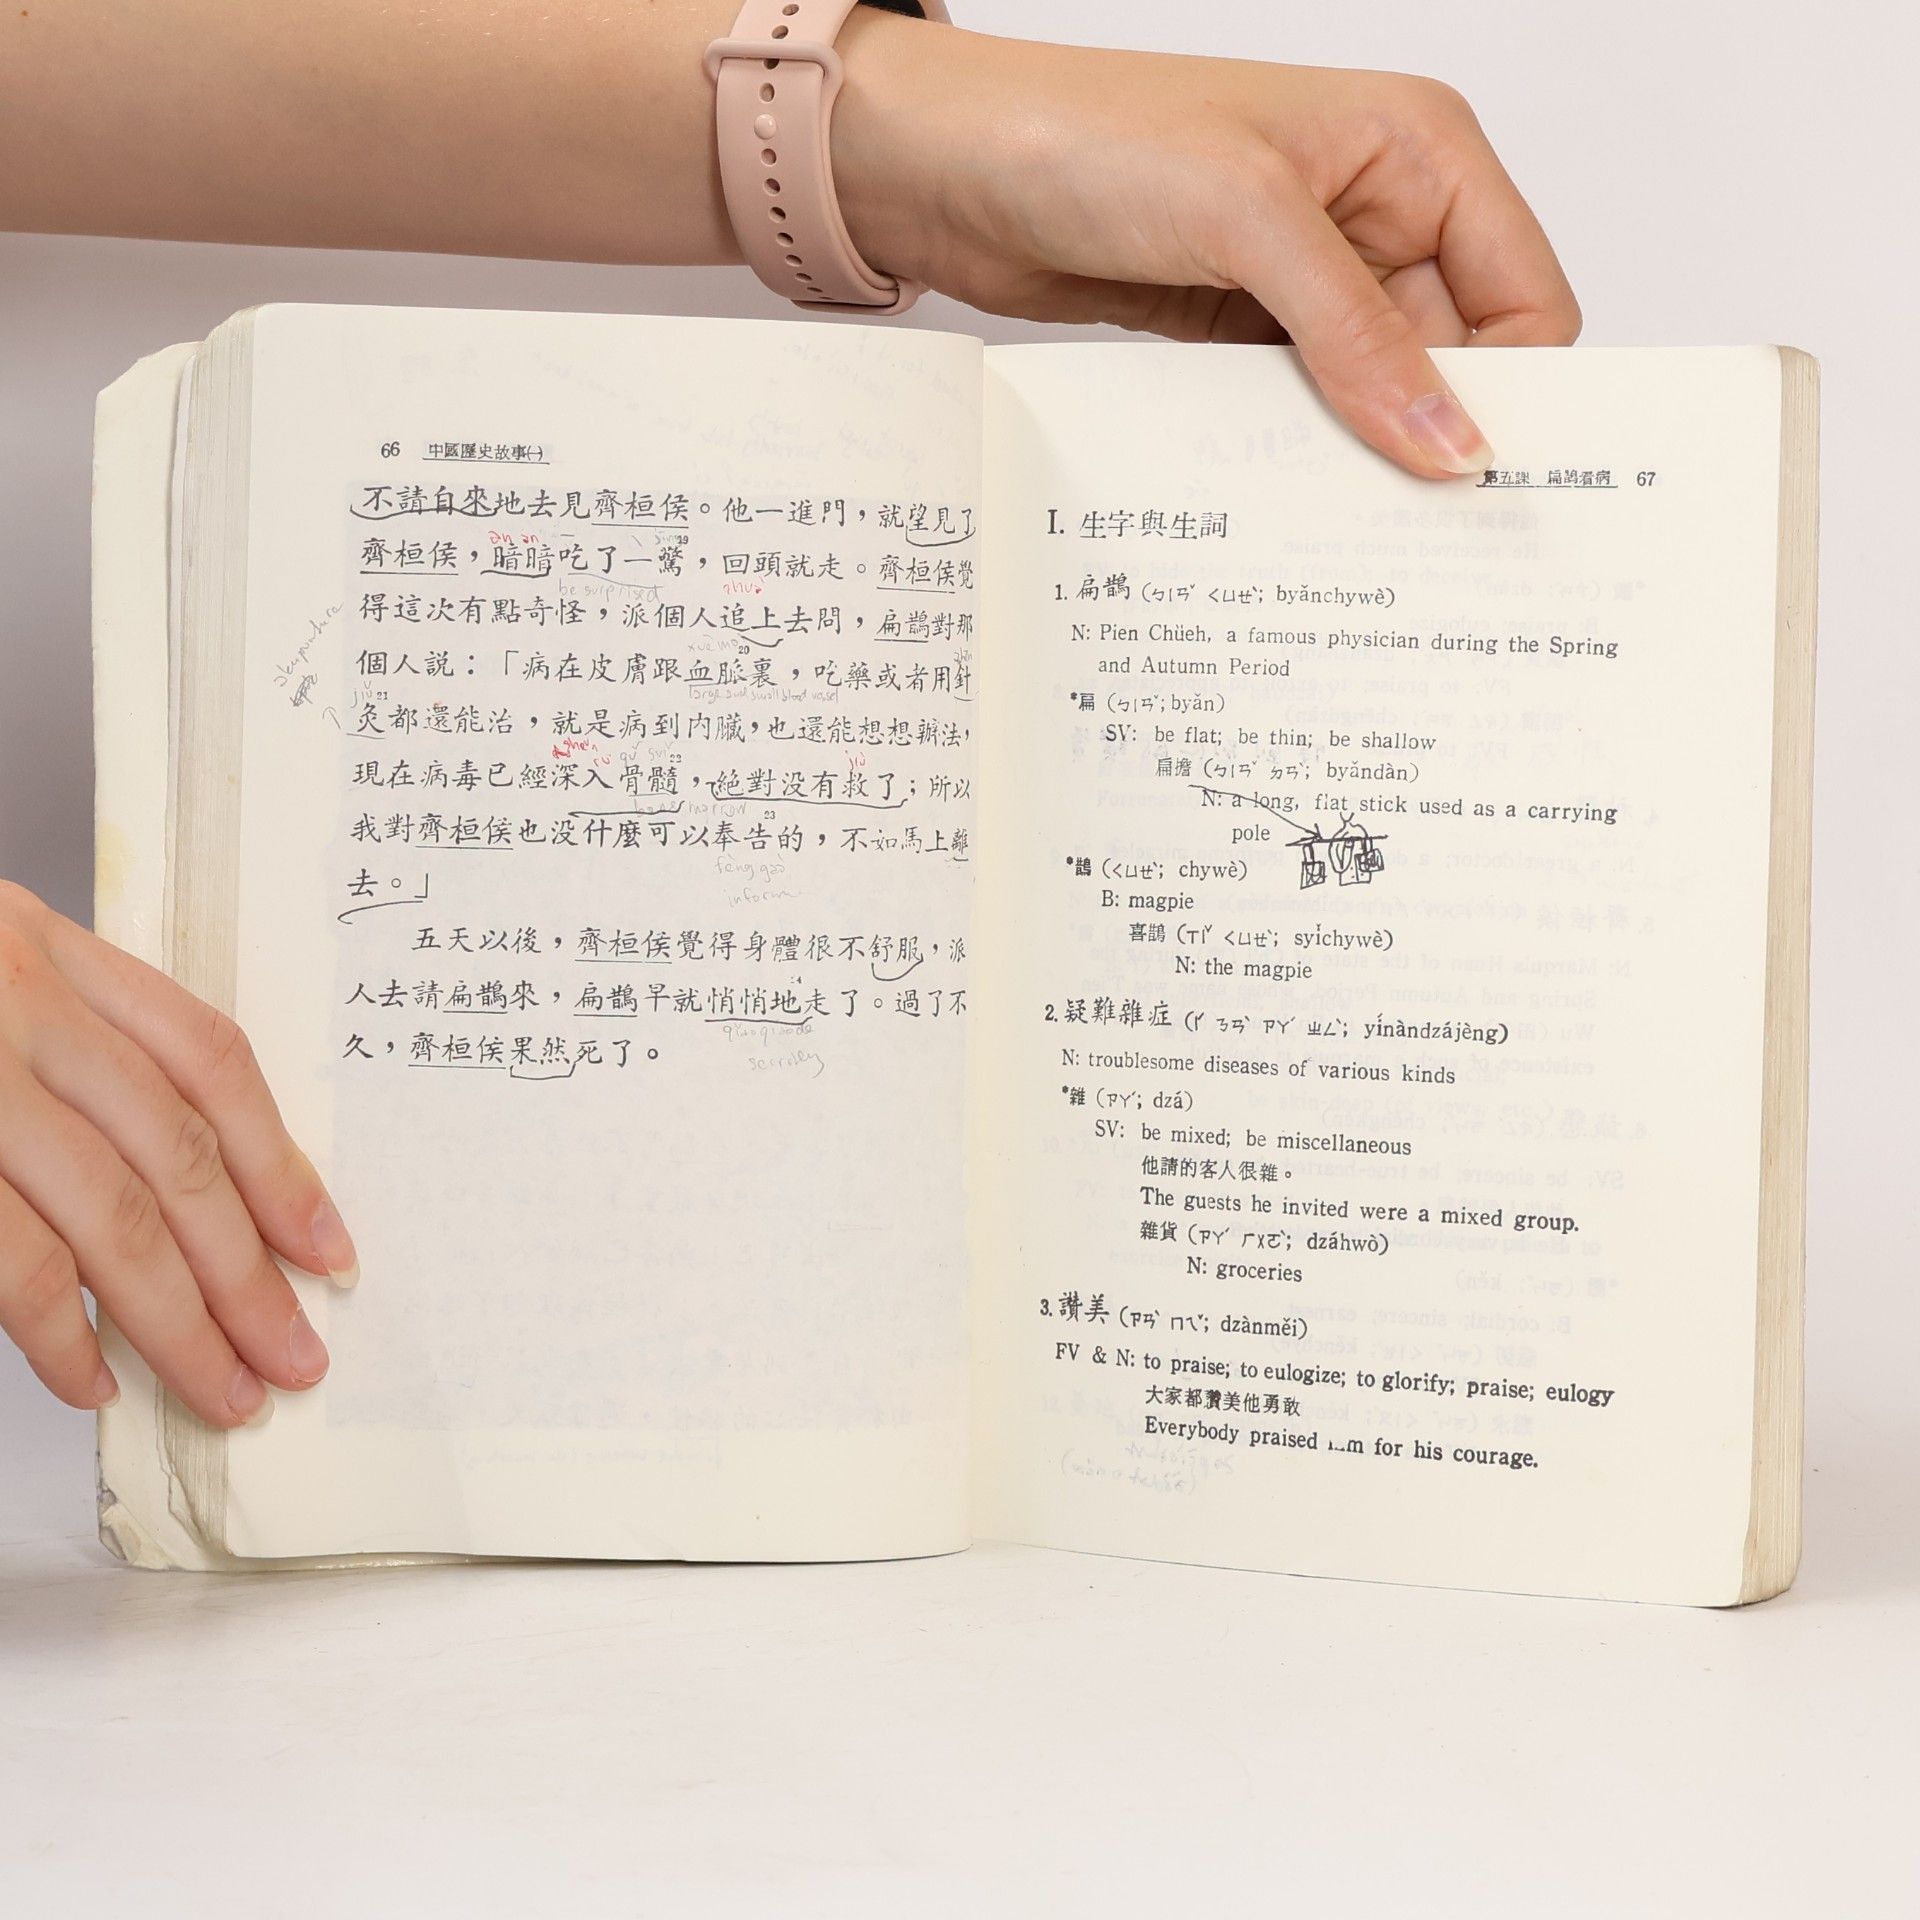 66 中國歷史故事㈠
不請自來地去見齊桓侯。他一進門，就望見了
àn àn
齊桓侯，暗暗吃了一驚，回頭就走。齊桓侯覺
be surprised
得這次有點奇怪，派個人追上去問，扁鵲對那
20
個人説：「病在皮膚跟血脈裏，吃藥或者用針
large and small blood vessel
jiǔ 21
灸都還能治，就是病到内臟，也還能想想辦法，
shēn rù gǔ suǐ 22 jiù
現在病毒已經深入骨髓，絕對没有救了；所以
bone marrow 23
我對齊桓侯也没什麼可以奉告的，不如馬上離
fèng gào
inform
去。」
五天以後，齊桓侯覺得身體很不舒服，派
人去請扁鵲來，扁鵲早就悄悄地走了。過了不
久，齊桓侯果然死了。
第五課 扁鵲看病 67
I. 生字與生詞
1. 扁鵲 (ㄅㄧㄢˇ ㄑㄩㄝˋ; byǎnchywè)
N: Pien Chüeh, a famous physician during the Spring
and Autumn Period
*扁 (ㄅㄧㄢˇ; byǎn)
SV: be flat; be thin; be shallow
扁擔 (ㄅㄧㄢˇ ㄉㄢˋ; byǎndàn)
N: a long, flat stick used as a carrying
pole
*鵲 (ㄑㄩㄝˋ; chywè)
B: magpie
喜鵲 (ㄒㄧˇ ㄑㄩㄝˋ; syǐchywè)
N: the magpie
2. 疑難雜症 (ㄧˊ ㄋㄢˊ ㄗㄚˊ ㄓㄥˋ; yínàndzájèng)
N: troublesome diseases of various kinds
*雜 (ㄗㄚˊ; dzá)
SV: be mixed; be miscellaneous
他請的客人很雜。
The guests he invited were a mixed group.
雜貨 (ㄗㄚˊ ㄏㄨㄛˋ; dzáhwò)
N: groceries
3. 讚美 (ㄗㄢˋ ㄇㄟˇ; dzànměi)
FV & N: to praise; to eulogize; to glorify; praise; eulogy
大家都讚美他勇敢
Everybody praised him for his courage.